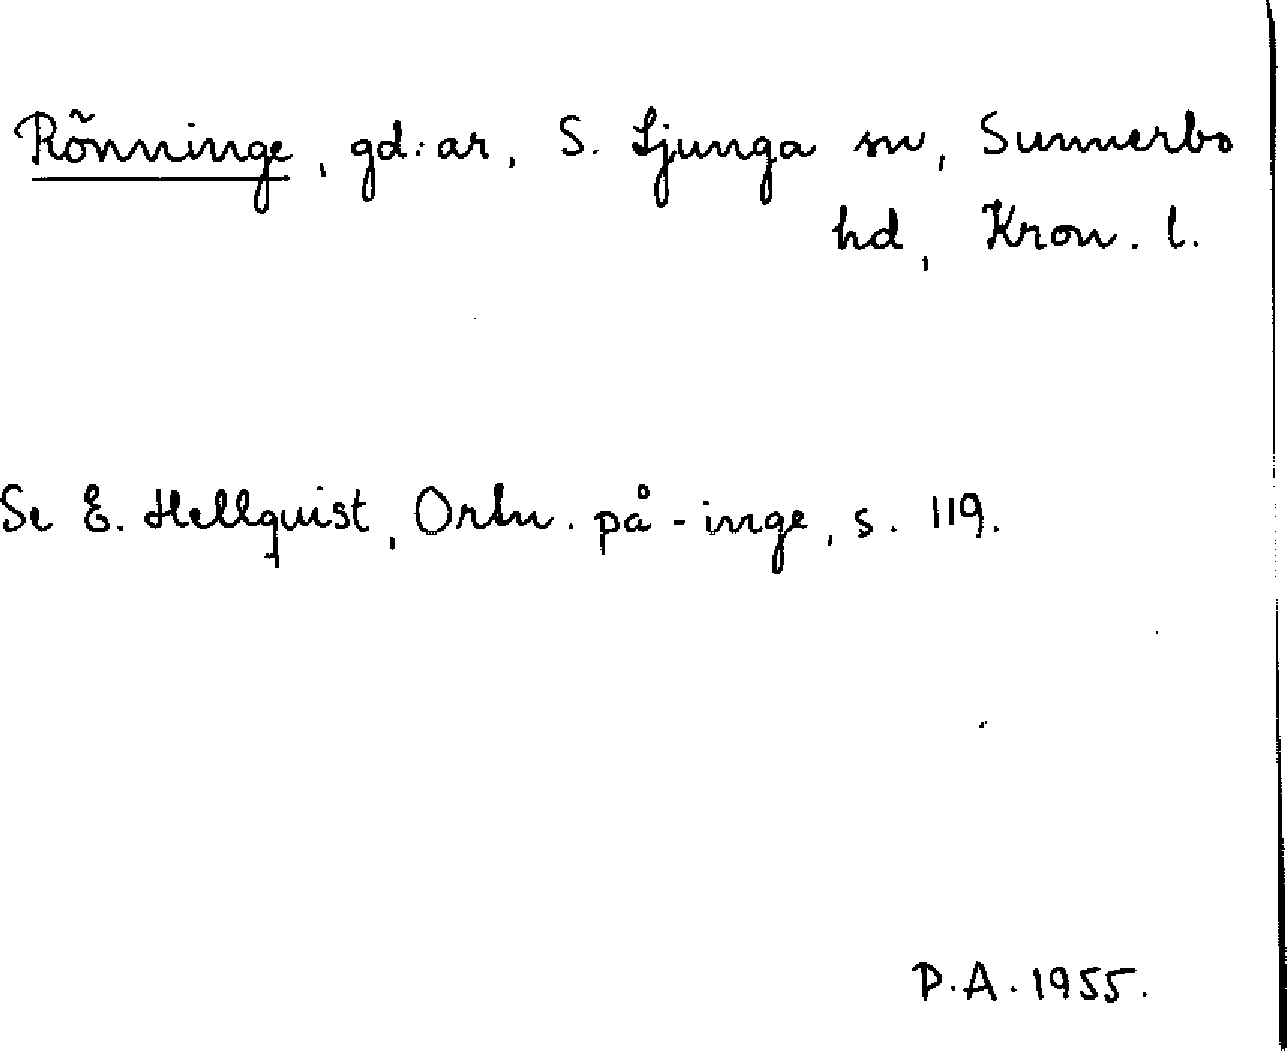 Rönninge, gd:ar, S. Ljunga sn, Sunnerbo
hd, Kron. l.
Se E. Hellquist, Ortn. på -inge, s. 119.
P.A. 1955.